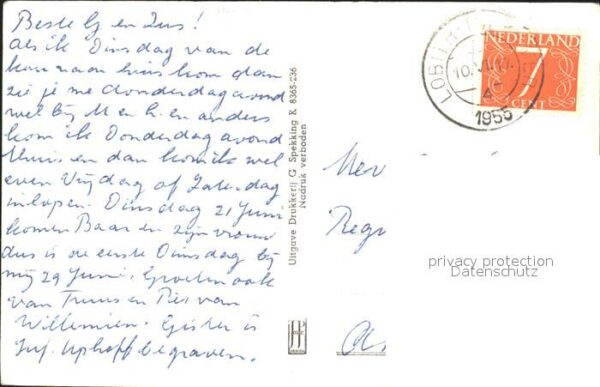 Beste G en Zus!
Als ik Dinsdag van de
kou naar huis kom dan
zie je me donderdagavond
wel bij M en h. en anders
kom ik Donderdag avond
thuis en dan kom ik wel
even Vrijdag of Zaterdag
inlopen. Dinsdag 21 Juni
komen Baar en zijn vrouw
dus is de eerste Dinsdag bij
mij 29 Juni. Groeten ook
van Truus en Piet van
Willemien. Gister is
Juf. Uphoff begraven.
Uitgave Drukkerij G Spekking K 8365-236
Nadruk verboden
NEDERLAND
7
CENT
1955
Mev
Regi
privacy protection
Datenschutz